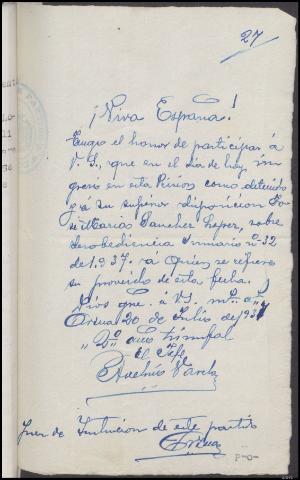 27
¡Viva España!
Tengo el honor de participar á
V. S, que en el dia de hoy, in
greso en esta Prision como detenido
y á su superior disposicion Jo-
sé Maria Sanchez Lopez, sobre
desobediencia Sumario nº 32
de 1.937. á quien se refiere
su proveido de esta fecha.
Dios gue. á V.S. ms. as
20 de Julio de 1937
"2º año triunfal
El Jefe
Juez de Instrucion de este partido